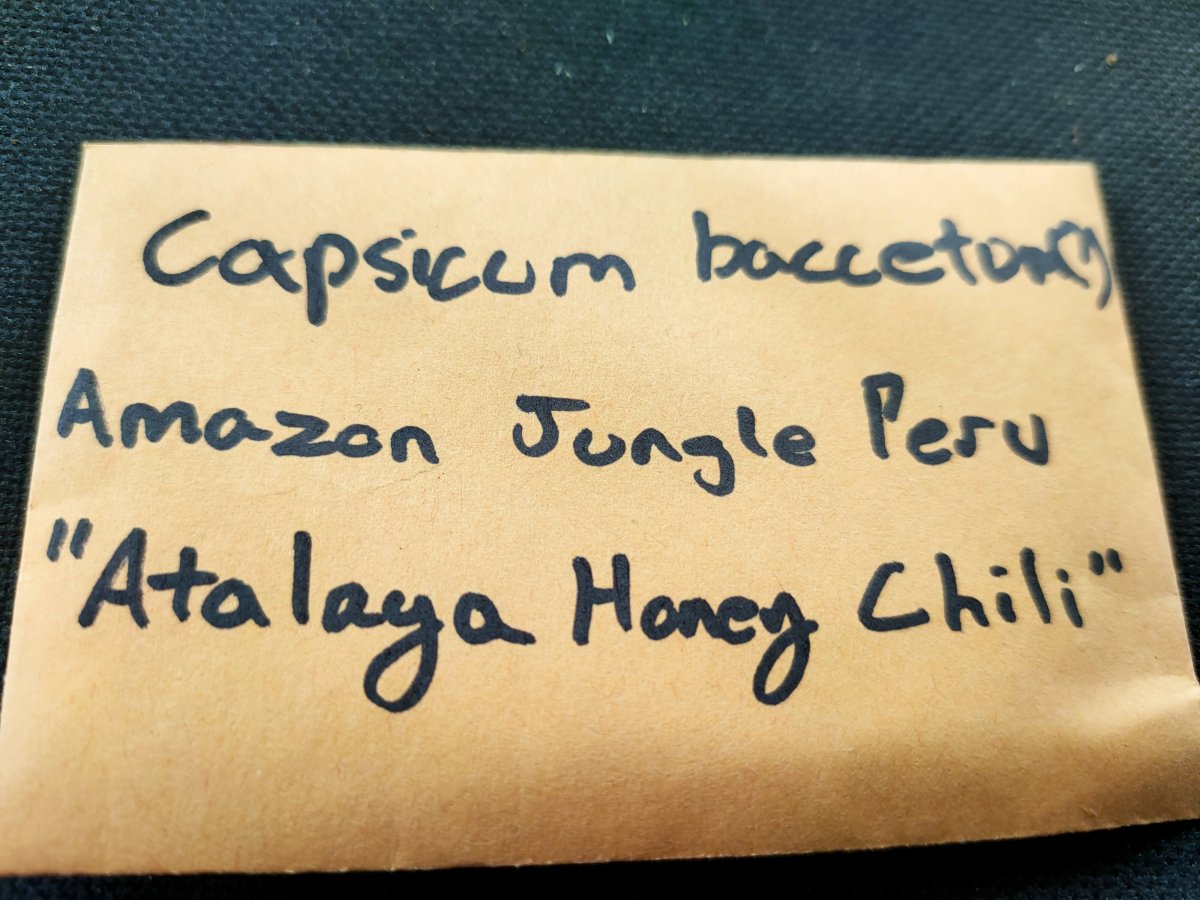 Capsicum baccetum(?)
Amazon Jungle Peru
"Atalaya Honey Chili"